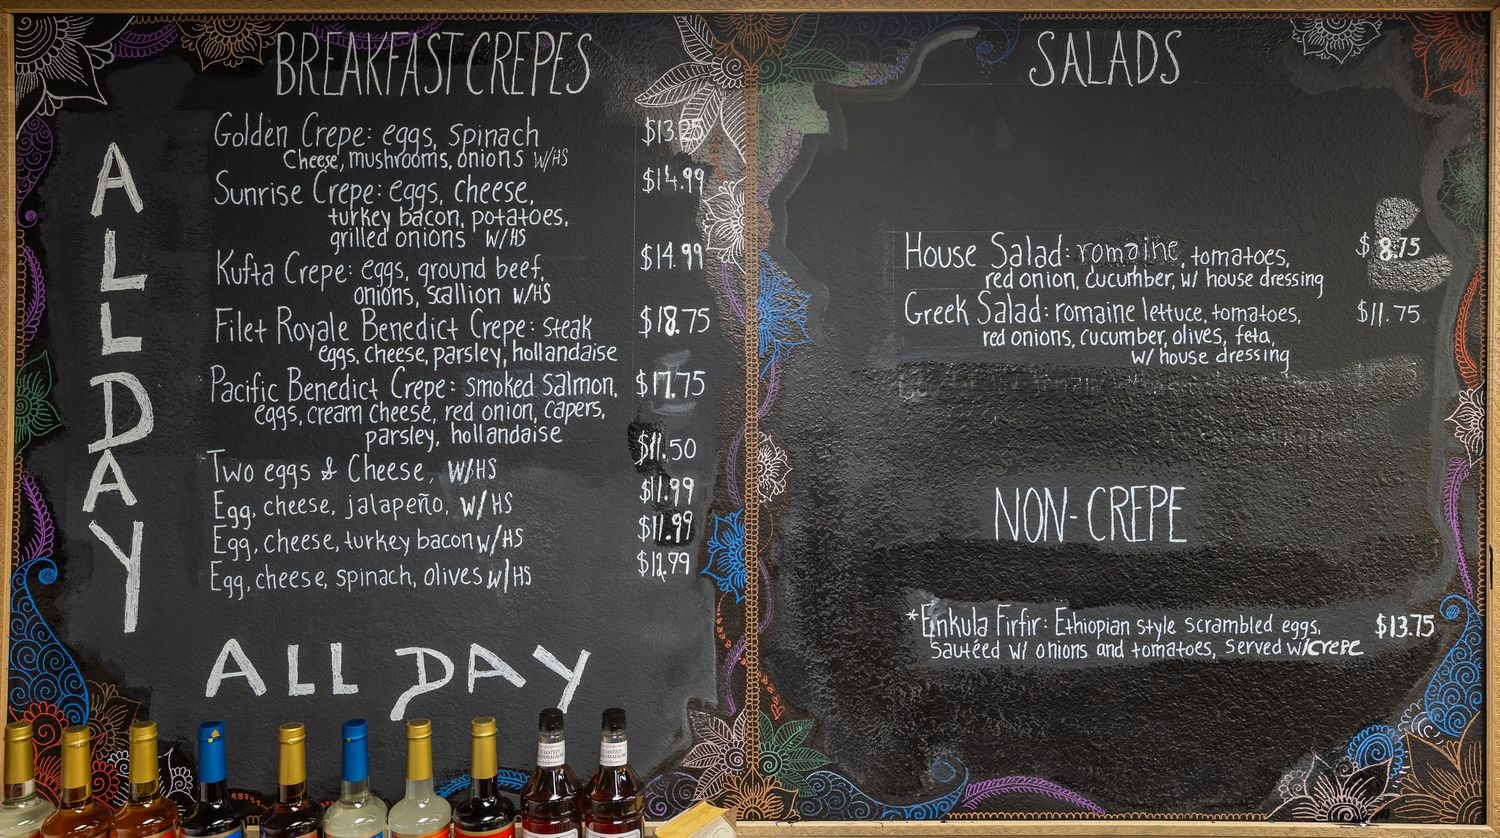 BREAKFAST CREPES
ALL DAY
Golden Crepe: eggs, spinach $13.25
Cheese, mushrooms, onions W/HS
Sunrise Crepe: eggs, cheese, $14.99
turkey bacon, potatoes,
grilled onions W/HS
Kufta Crepe: eggs, ground beef, $14.99
onions, scallion W/HS
Filet Royale Benedict Crepe: steak $18.75
eggs, cheese, parsley, hollandaise
Pacific Benedict Crepe: smoked salmon, $17.75
eggs, cream cheese, red onion, capers,
parsley, hollandaise
Two eggs & Cheese, W/HS $11.50
Egg, cheese, jalapeño, w/HS $11.99
Egg, cheese, turkey bacon w/HS $11.99
Egg, cheese, spinach, olives w/HS $12.99
ALL DAY
SALADS
House Salad: romaine, tomatoes, $8.75
red onion, cucumber, w/ house dressing
Greek Salad: romaine lettuce, tomatoes, $11.75
red onions, cucumber, olives, feta,
w/ house dressing
NON-CREPE
*Enkula Firfir: Ethiopian style scrambled eggs, $13.75
sautéed w/ onions and tomatoes, served w/crepe